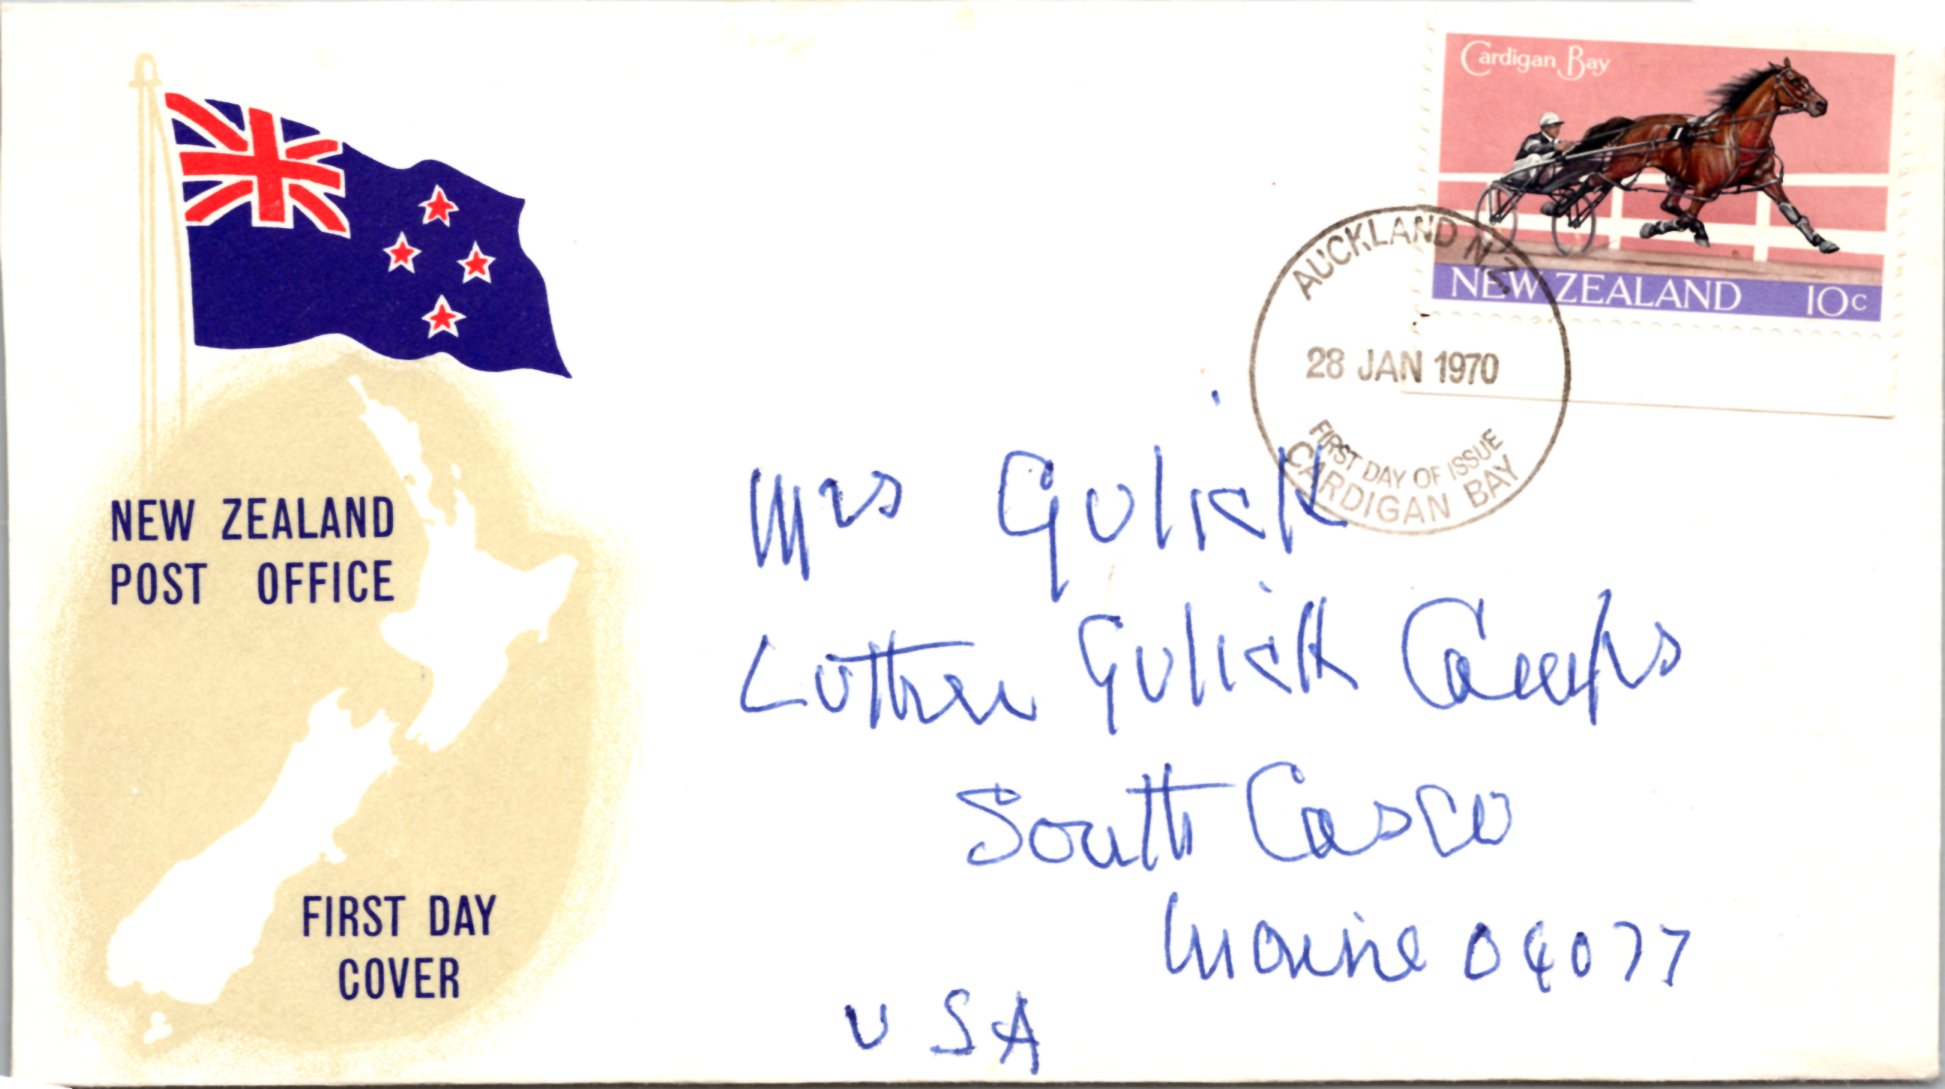 Cardigan Bay
NEW ZEALAND 10c
AUCKLAND N.Z.
28 JAN 1970
FIRST DAY OF ISSUE
CARDIGAN BAY
NEW ZEALAND
POST OFFICE
FIRST DAY
COVER
Mrs Gulick
Luther Gulick Camps
South Casco
Maine 04077
USA